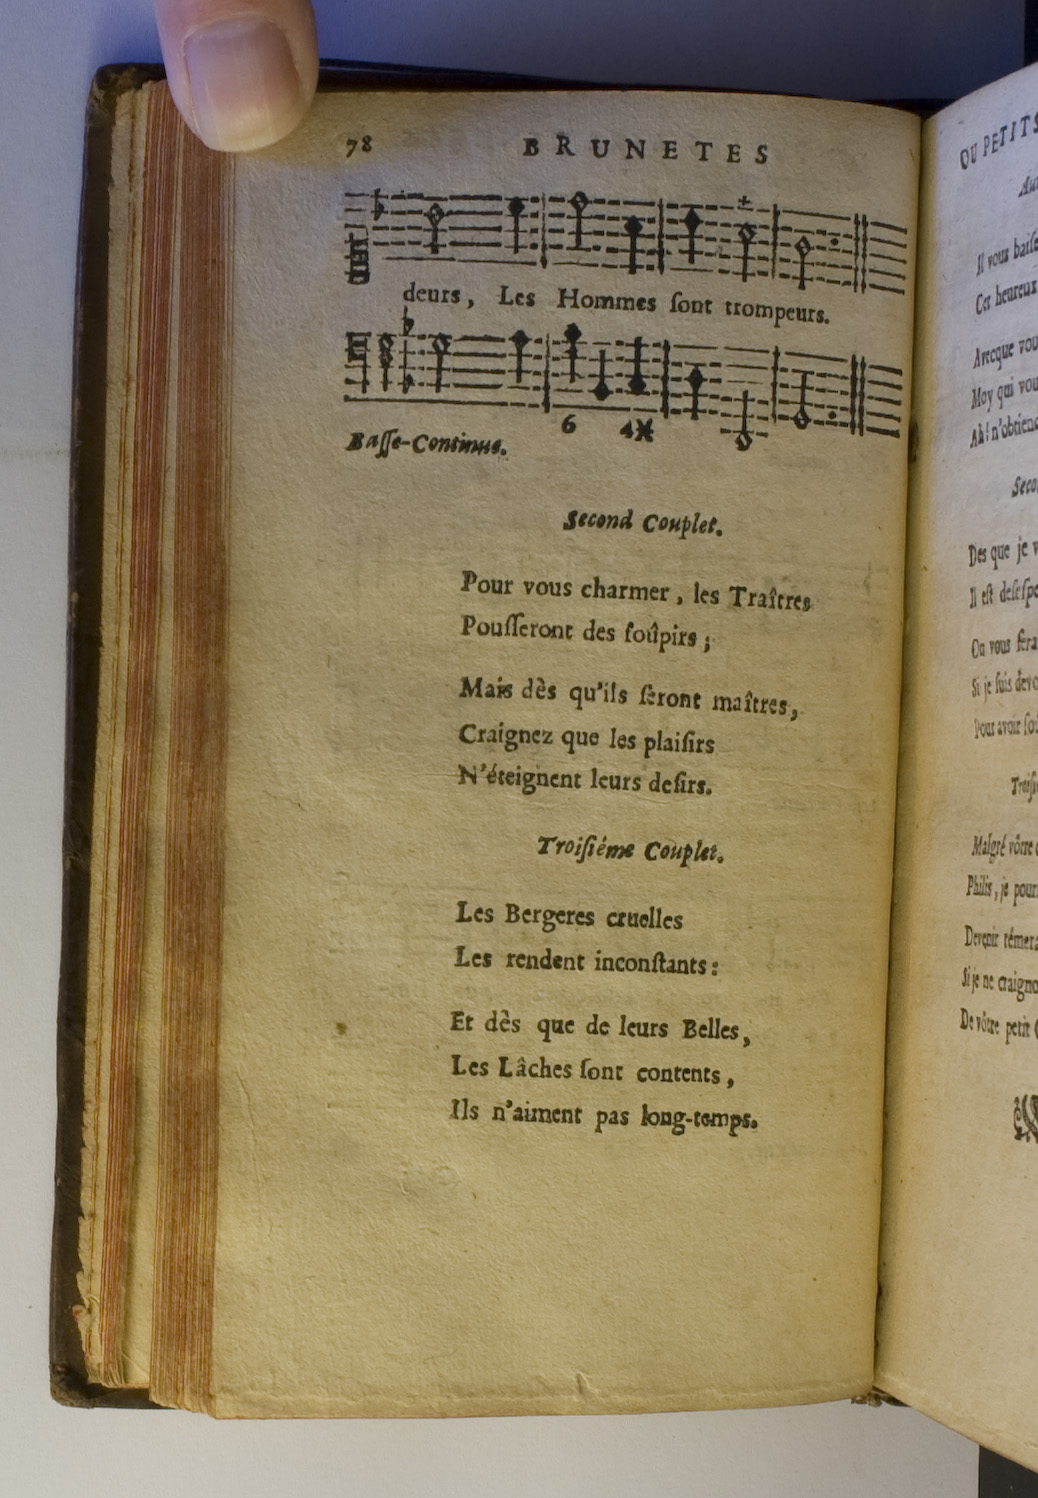 78 BRUNETES
deurs, Les Hommes ſont trompeurs.
6 4
Baſſe-Continue.
Second Couplet.
Pour vous charmer, les Traîtres
Pouſſeront des ſoûpirs;
Mais dès qu'ils ſeront maîtres,
Craignez que les plaiſirs
N'éteignent leurs deſirs.
Troiſiéme Couplet.
Les Bergeres cruelles
Les rendent inconſtants:
Et dès que de leurs Belles,
Les Lâches ſont contents,
Ils n'aiment pas long-temps.
OU PETITS
Il vous baiſe
Cet heureux
Avecque vou
Moy qui vou
Ah! n'obtienc
Seco
Dès que je v
Il eſt deſeſpe
On vous fera
Si je ſuis devo
Pour avoir ſo
Troiſi
Malgré vôtre
Philis, je pour
Devenir témera
Si je ne craigno
De vôtre petit